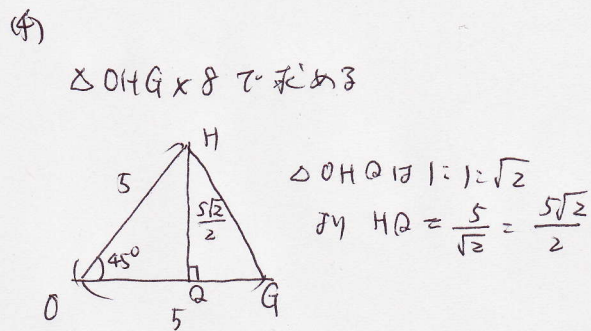 (4)
△OHG×8で求める
H
5
5√2/2
45°
O
Q
G
5
△OHQは1:1:√2
より HQ = 5/√2 = 5√2/2